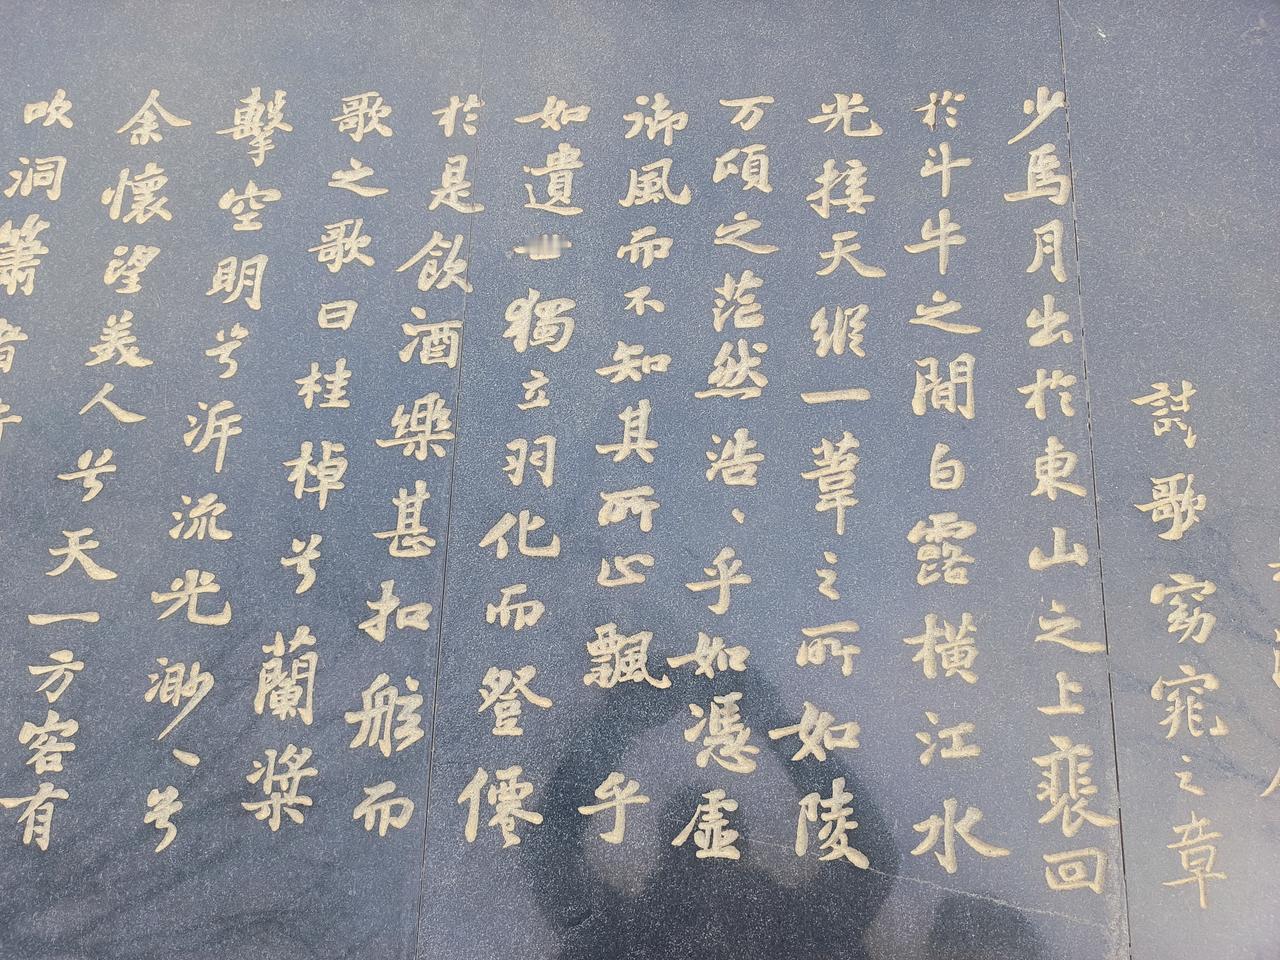 詩歌窈窕之章
少焉月出於東山之上裴回
於斗牛之間白露橫江水
光接天縱一葦之所如陵
万頃之茫然浩、乎如憑虛
御風而不知其所止飄乎
如遺獨立羽化而登僊
於是飲酒樂甚扣舷而
歌之歌曰桂棹兮蘭槳
擊空明兮泝流光渺、兮
余懷望美人兮天一方客有
吹洞簫者